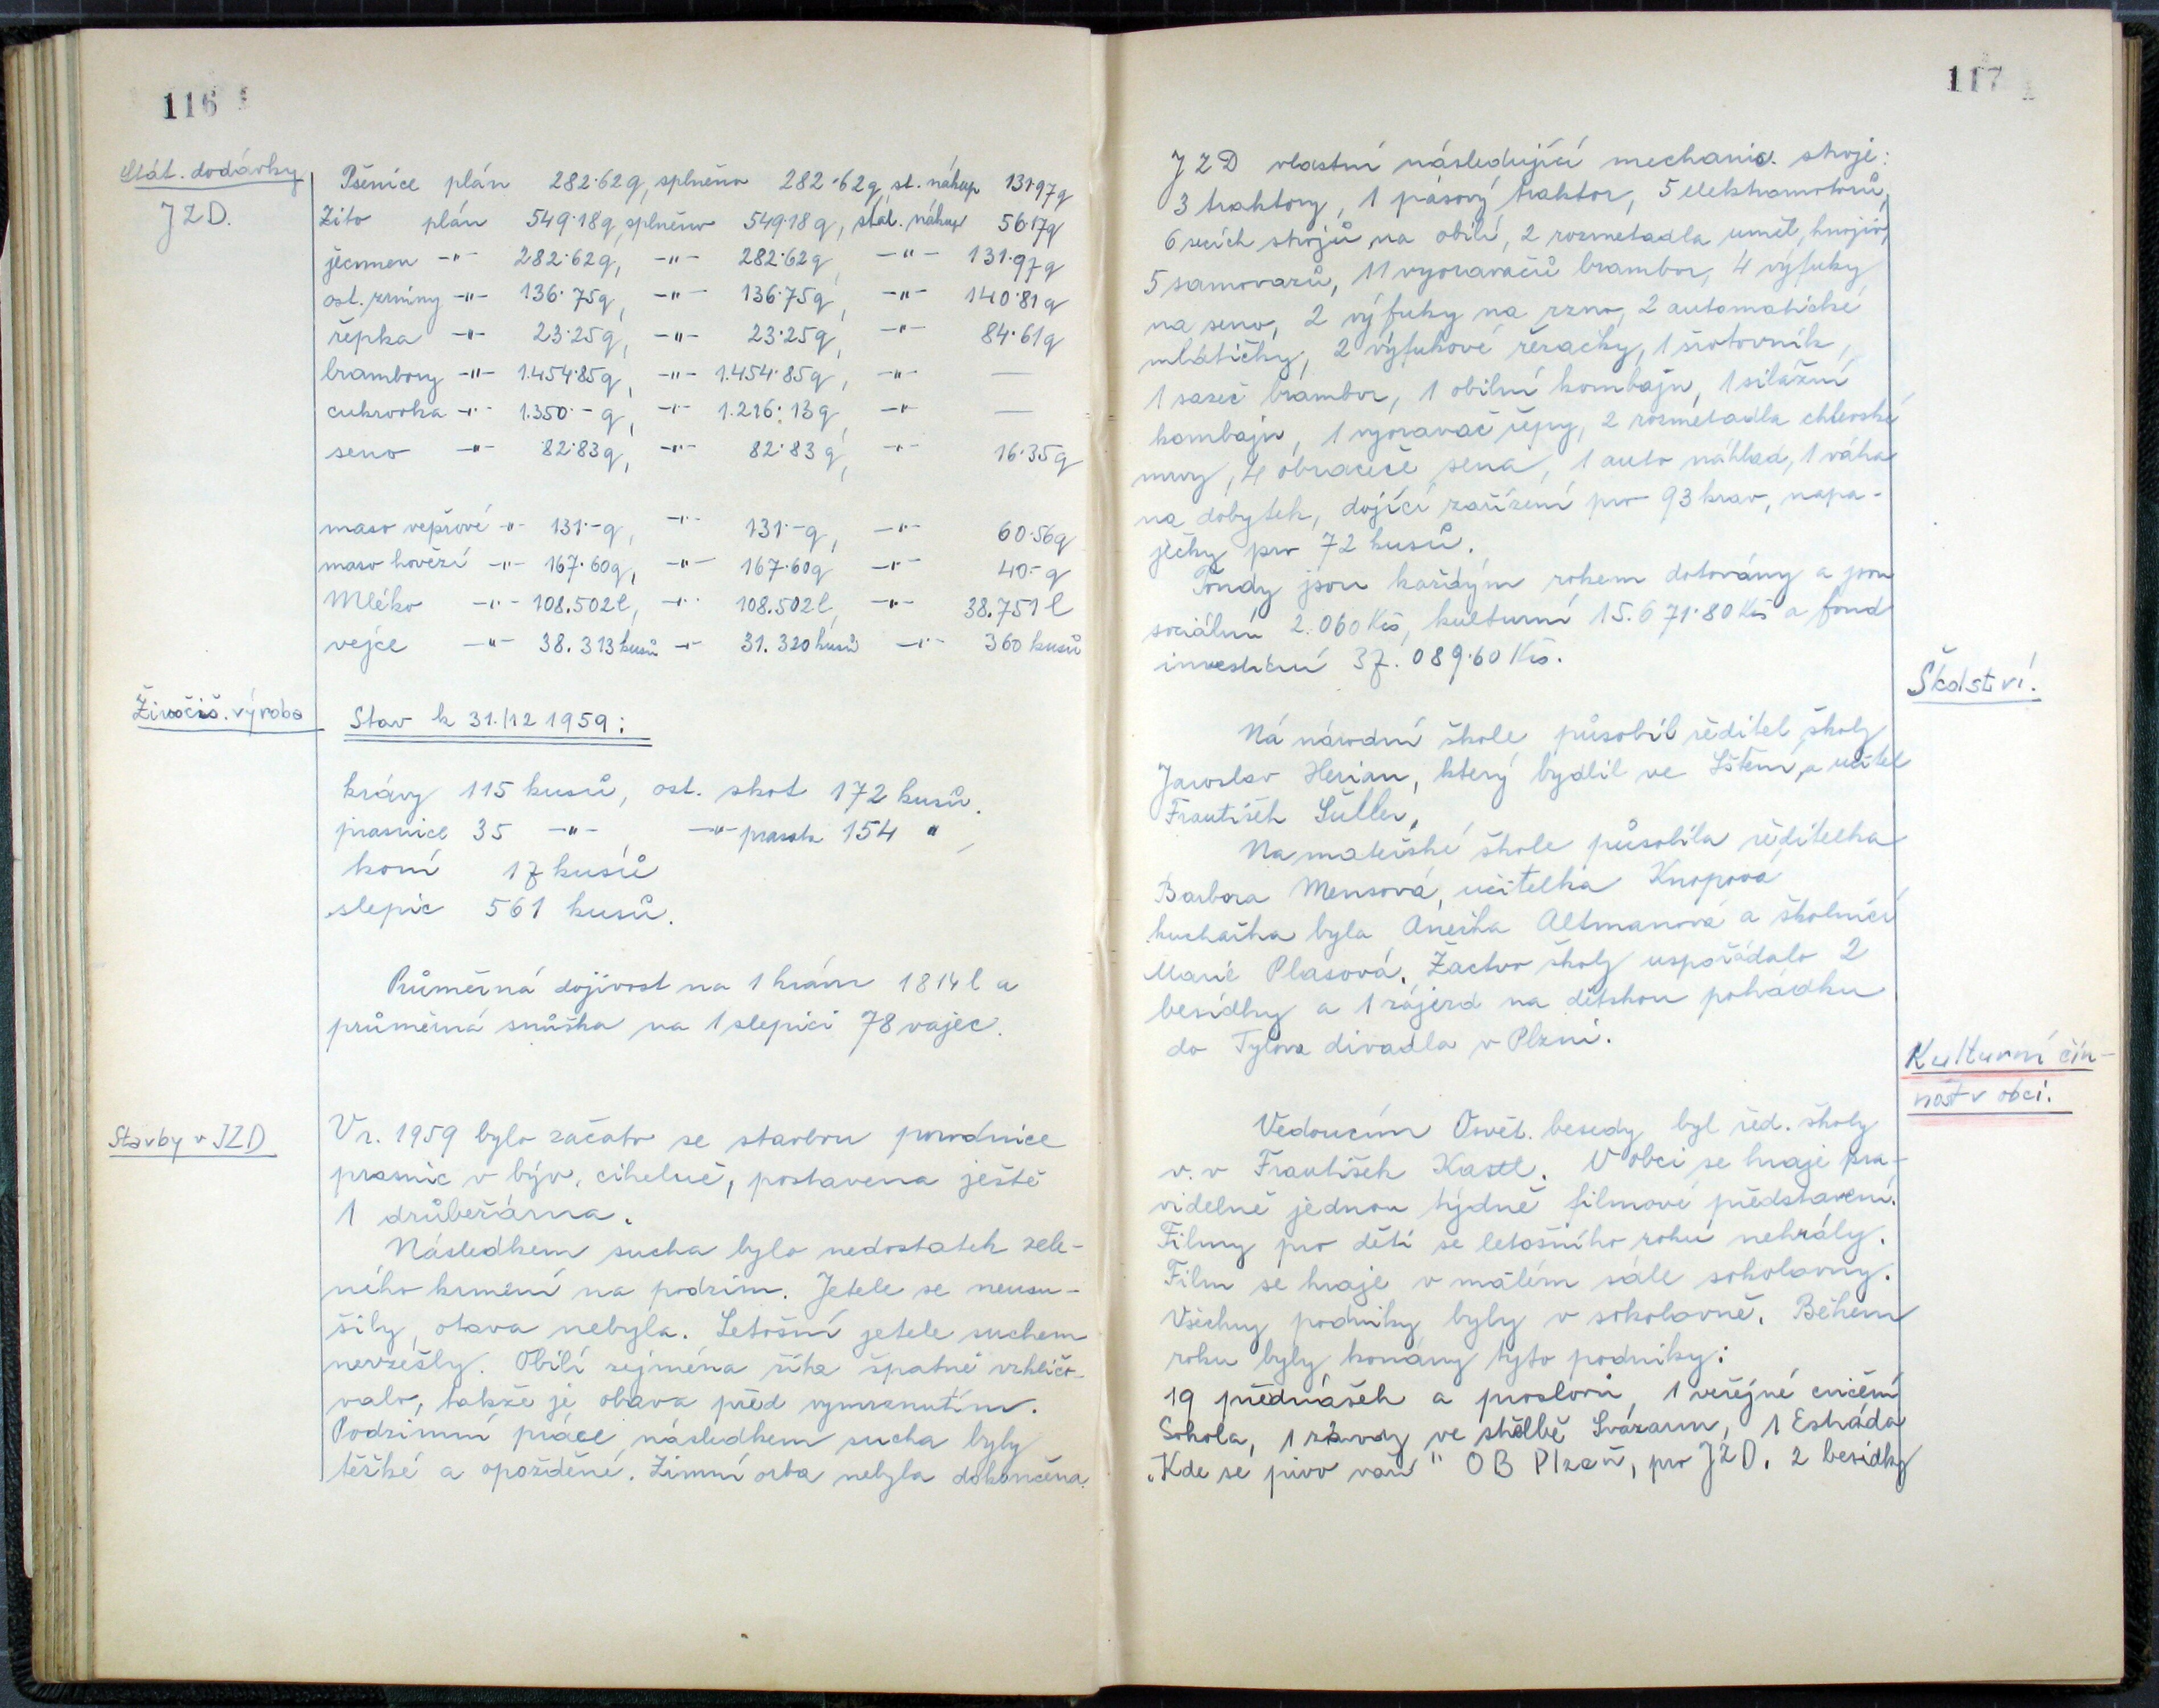 116
Stát. dodávky
JZD.
Pšenice plán 282·62q, splněno 282·62q, st. nákup 131·97q
Žito plán 549·18q, splněno 549·18q, stát. nákup 56·17q
ječmen -"- 282·62q, -"- 282·62q, -"- 131·97q
ost. zrniny -"- 136·75q, -"- 136·75q, -"- 140·81q
řepka -"- 23·25q, -"- 23·25q, -"- 84·61q
brambory -"- 1.454·85q, -"- 1.454·85q, -"- —
cukrovka -"- 1.350·-q, -"- 1.216·13q, -"- —
seno -"- 82·83q, -"- 82·83q, -"- 16·35q
maso vepřové -"- 131·-q, -"- 131·-q, -"- 60·56q
maso hovězí -"- 167·60q, -"- 167·60q -"- 40·-q
Mléko -"- 108.502l, -"- 108.502l, -"- 38.751l
vejce -"- 38.313 kusů -"- 31.320 kusů -"- 360 kusů
Živočiš. výroba
Stav k 31./12 1959:
krávy 115 kusů, ost. skot 172 kusů.
prasnice 35 -"-, -"- prasata 154 "
koní 17 kusů
slepic 561 kusů.
Průměrná dojivost na 1 krávu 1814 l a
průměrná snůška na 1 slepici 78 vajec.
Stavby v JZD
V r. 1959 bylo začato se stavbou porodnice
prasnic v býv. cihelně, postavena ještě
1 drůbežárna.
Následkem sucha bylo nedostatek zele-
ného krmení na podzim. Jetele se neusu-
šily, otava nebyla. Letošní jetele suchem
nevzešly. Obilí zejména žita špatně vzklíčo-
valo, takže je obava před vymrznutím.
Podzimní práce následkem sucha byly
těžké a opožděné. Zimní orba nebyla dokončena.
117
JZD vlastní následující mechanis. stroje:
3 traktory, 1 pásový traktor, 5 elektramotorů,
6 secích strojů na obilí, 2 rozmetadla uměl. hnojiv,
5 samovazů, 11 vyoravačů brambor, 4 výfuky
na seno, 2 výfuky na zrno, 2 automatické
mlátičky, 2 výfukové řezačky, 1 šrotovník,
1 sazeč brambor, 1 obilní kombajn, 1 silážní
kombajn, 1 vyoravač řepy, 2 rozmetadla chlevské
mrvy, 4 obraceče sena, 1 auto náklad, 1 váha
na dobytek, dojící zařízení pro 93 krav, napa-
ječky pro 72 kusů.
Fondy jsou každým rokem dotovány a jsou
sociální 2.060 Kčs, kulturní 15.671·80 Kčs a fond
investiční 37.089·60 Kčs.
Školství.
Na národní škole působil ředitel školy
Jaroslav Herian, který bydlil ve Lštění, a učitel
František Šuller.
Na mateřské škole působila ředitelka
Barbora Mensová, učitelka Knopová
kuchařka byla Anežka Altmanová a školnicí
Marie Plasová. Žactvo školy uspořádalo 2
besídky a 1 zájezd na dětskou pohádku
do Tylova divadla v Plzni.
Kulturní čin-
nost v obci.
Vedoucím Osvět. besedy byl řed. školy
v. v František Kastl. V obci se hraje pra-
videlně jednou týdně filmové představení.
Filmy pro děti se letošního roku nehrály.
Film se hraje v malém sále sokolovny.
Všechny podniky byly v sokolovně. Během
roku byly konány tyto podniky:
19 přednášek a proslovů, 1 veřejné cvičení
Sokola, 1 závody ve střelbě Svazarm, 1 Estráda
„Kde se pivo vaří" OB Plzeň, pro JZD. 2 besídky